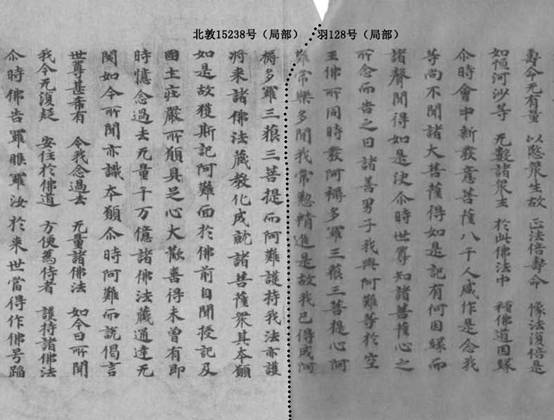 北敦15238号（局部） 羽128号（局部）
壽命无有量 以愍衆生故 正法倍壽命 像法復倍是
如恒河沙等 无數諸衆生 於此佛法中 種佛道因緣
尒時會中新發意菩薩八千人咸作是念我
等尚不聞諸大菩薩得如是記有何因緣而
諸聲聞得如是決尒時世尊知諸菩薩心之
所念而告之曰諸善男子我與阿難等於空
王佛所同時發阿耨多羅三藐三菩提心阿
難常樂多聞我常懃精進是故我已得成阿
耨多羅三藐三菩提而阿難護持我法亦護
將来諸佛法藏教化成就諸菩薩衆其本願
如是故獲斯記阿難面於佛前自聞授記及
國土莊嚴所願具足心大歡喜得未曾有即
時憶念過去无量千万億諸佛法藏通達无
閡如今所聞亦識本願尒時阿難而說偈言
世尊甚希有 令我念過去 无量諸佛法 如今日所聞
我今无復疑 安住於佛道 方便為侍者 護持諸佛法
尒時佛告羅睺羅汝於来世當得作佛号蹈